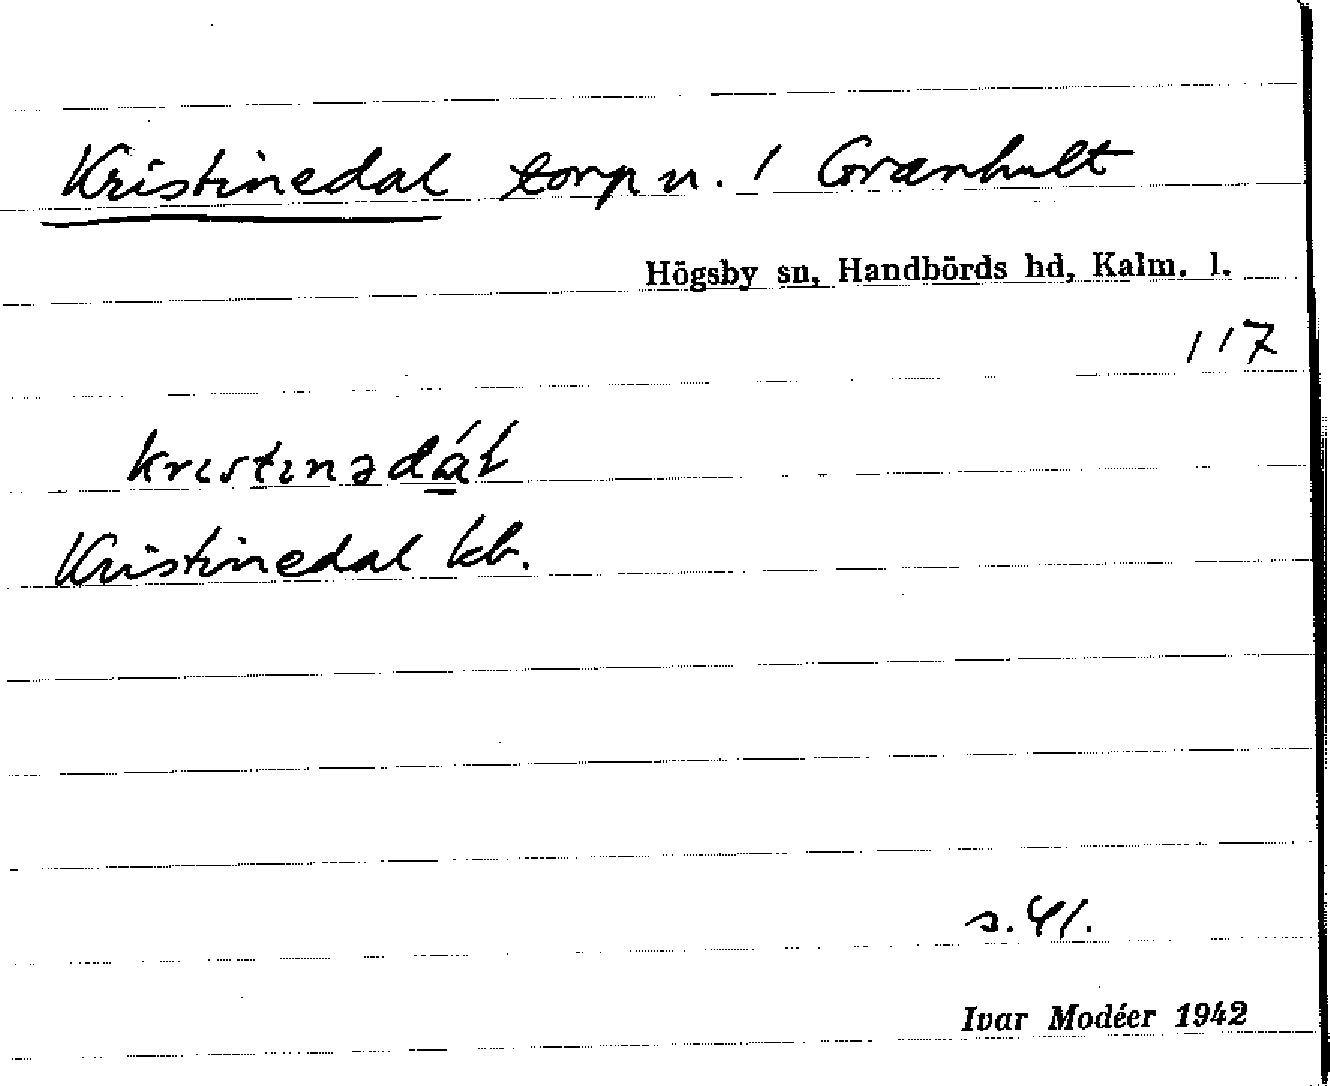 Kristinedal torp u. 1 Granhult
Högsby sn, Handbörds hd, Kalm. l.
117
krıstınədá̱l
Kristinedal kb.
s. 41.
Ivar Modéer 1942